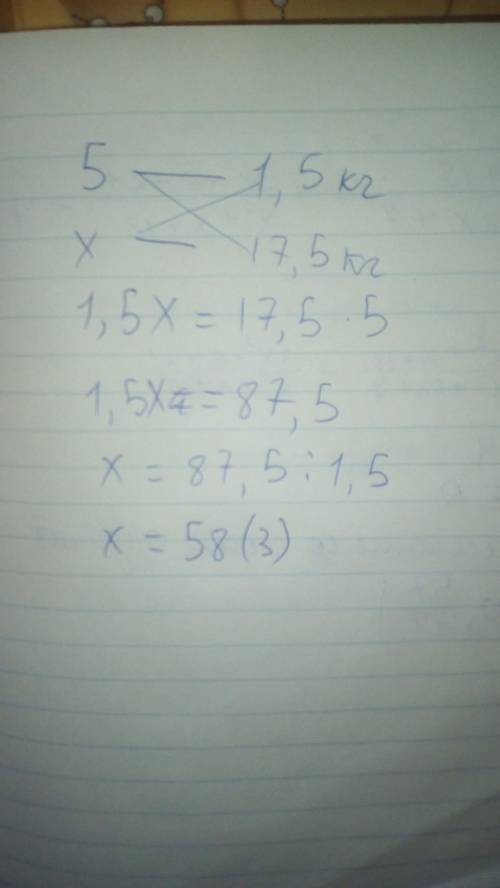 5 — 1,5 кг
x — 17,5 кг
1,5x = 17,5 · 5
1,5x = 87,5
x = 87,5 : 1,5
x = 58(3)